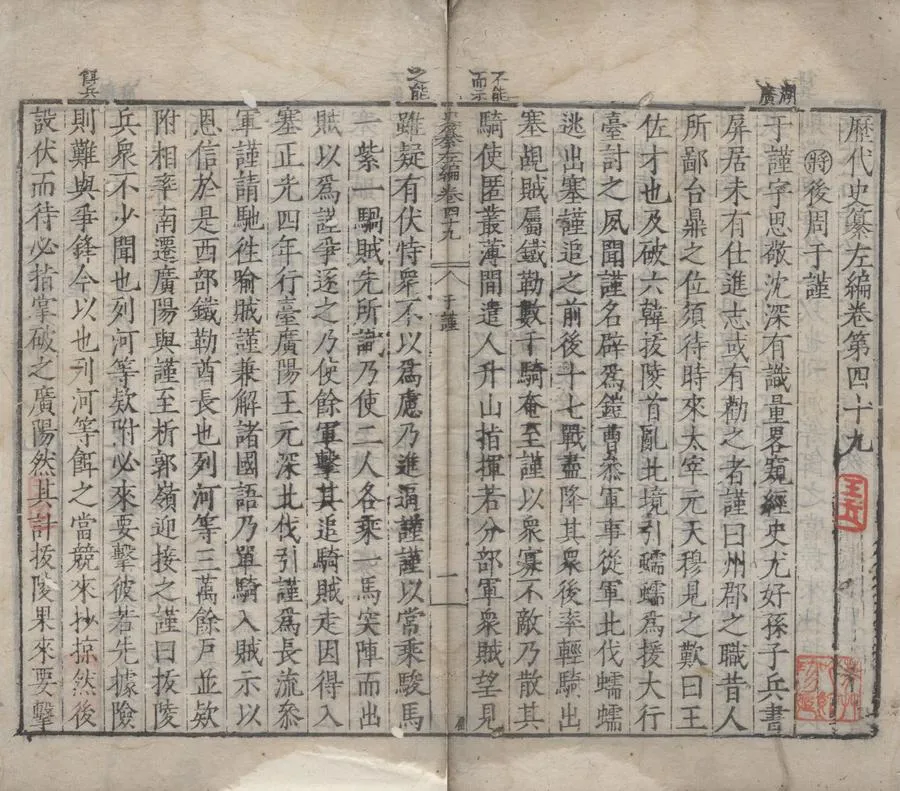 歷代史纂左編卷第四十九
將後周于謹
湖廣
于謹字思敬沈深有識量畧窺經史尤好孫子兵書
屏居未有仕進志或有勸之者謹曰州郡之職昔人
所鄙台鼎之位須待時來太宰元天穆見之歎曰王
佐才也及破六韓拔陵首亂北境引蠕蠕為援大行
臺討之夙聞謹名辟為鎧曹叅軍事從軍北伐蠕蠕
逃出塞謹追之前後十七戰盡降其衆後率輕騎出
塞覘賊屬鐵勒數千騎奄至謹以衆寡不敵乃散其
騎使匿叢薄間遣人升山指揮若分部軍衆賊望見
不能而示
之能
史纂左編卷四十九
于謹
一
雖疑有伏恃衆不以為慮乃進逼謹謹以常乘駿馬
一紫一騧賊先所識乃使二人各乘一馬突陣而出
賊以為謹爭逐之乃使餘軍擊其追騎賊走因得入
塞正光四年行臺廣陽王元深北伐引謹為長流叅
軍謹請馳徃喻賊謹兼解諸國語乃單騎入賊示以
恩信於是西部鐵勒酋長也列河等三萬餘戶並欵
附相率南遷廣陽與謹至折郭嶺迎接之謹曰拔陵
兵衆不少聞也列河等欵附必來要擊彼若先據險
則難與爭鋒今以也列河等餌之當競來抄掠然後
設伏而待必指掌破之廣陽然其計拔陵果來要擊
餌兵